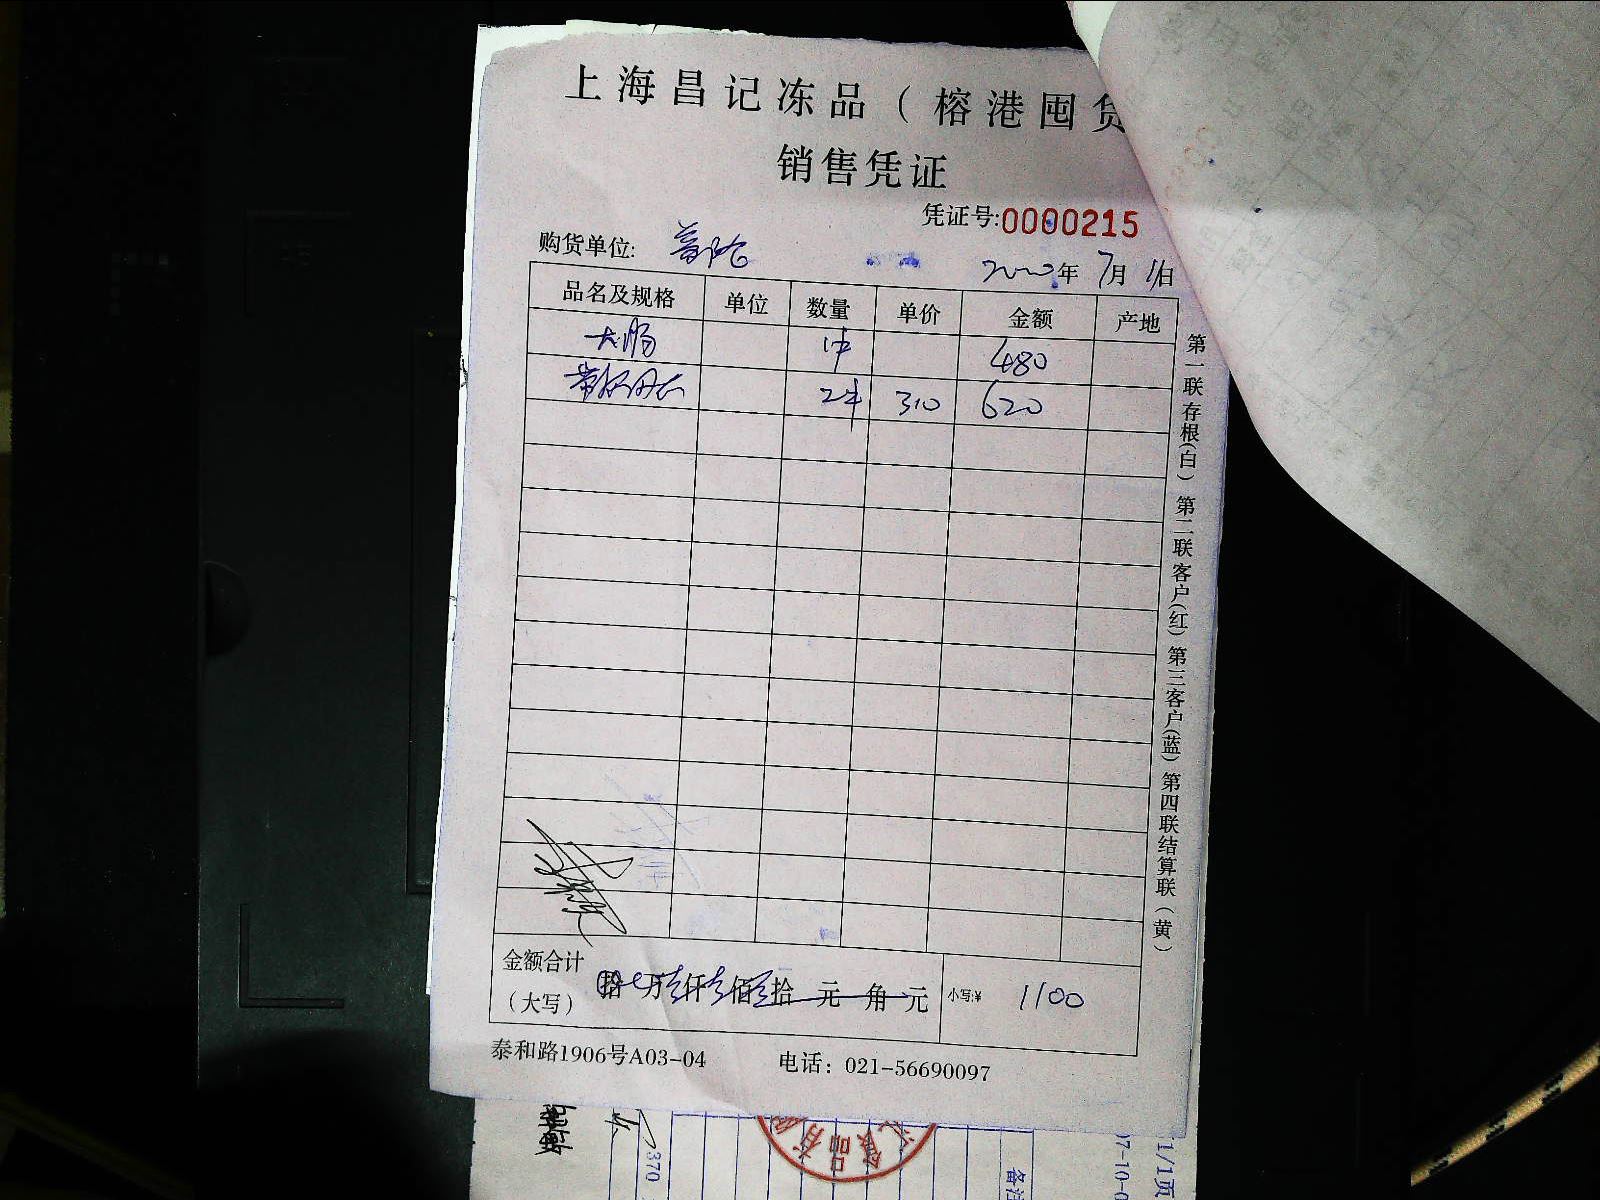 上海昌记冻品（榕港囤货
销售凭证
凭证号:0000215
购货单位:
2020年 7月 11日
品名及规格 单位 数量 单价 金额 产地
大肠 1件 480
2件 310 620
金额合计
（大写） 拾 万 仟 佰 拾 元 角 元 小写:¥ 1100
泰和路1906号A03-04 电话：021-56690097
第一联存根(白) 第二联客户(红) 第三客户(蓝) 第四联结算联（黄）
370
备注
1/1页
07-10-0